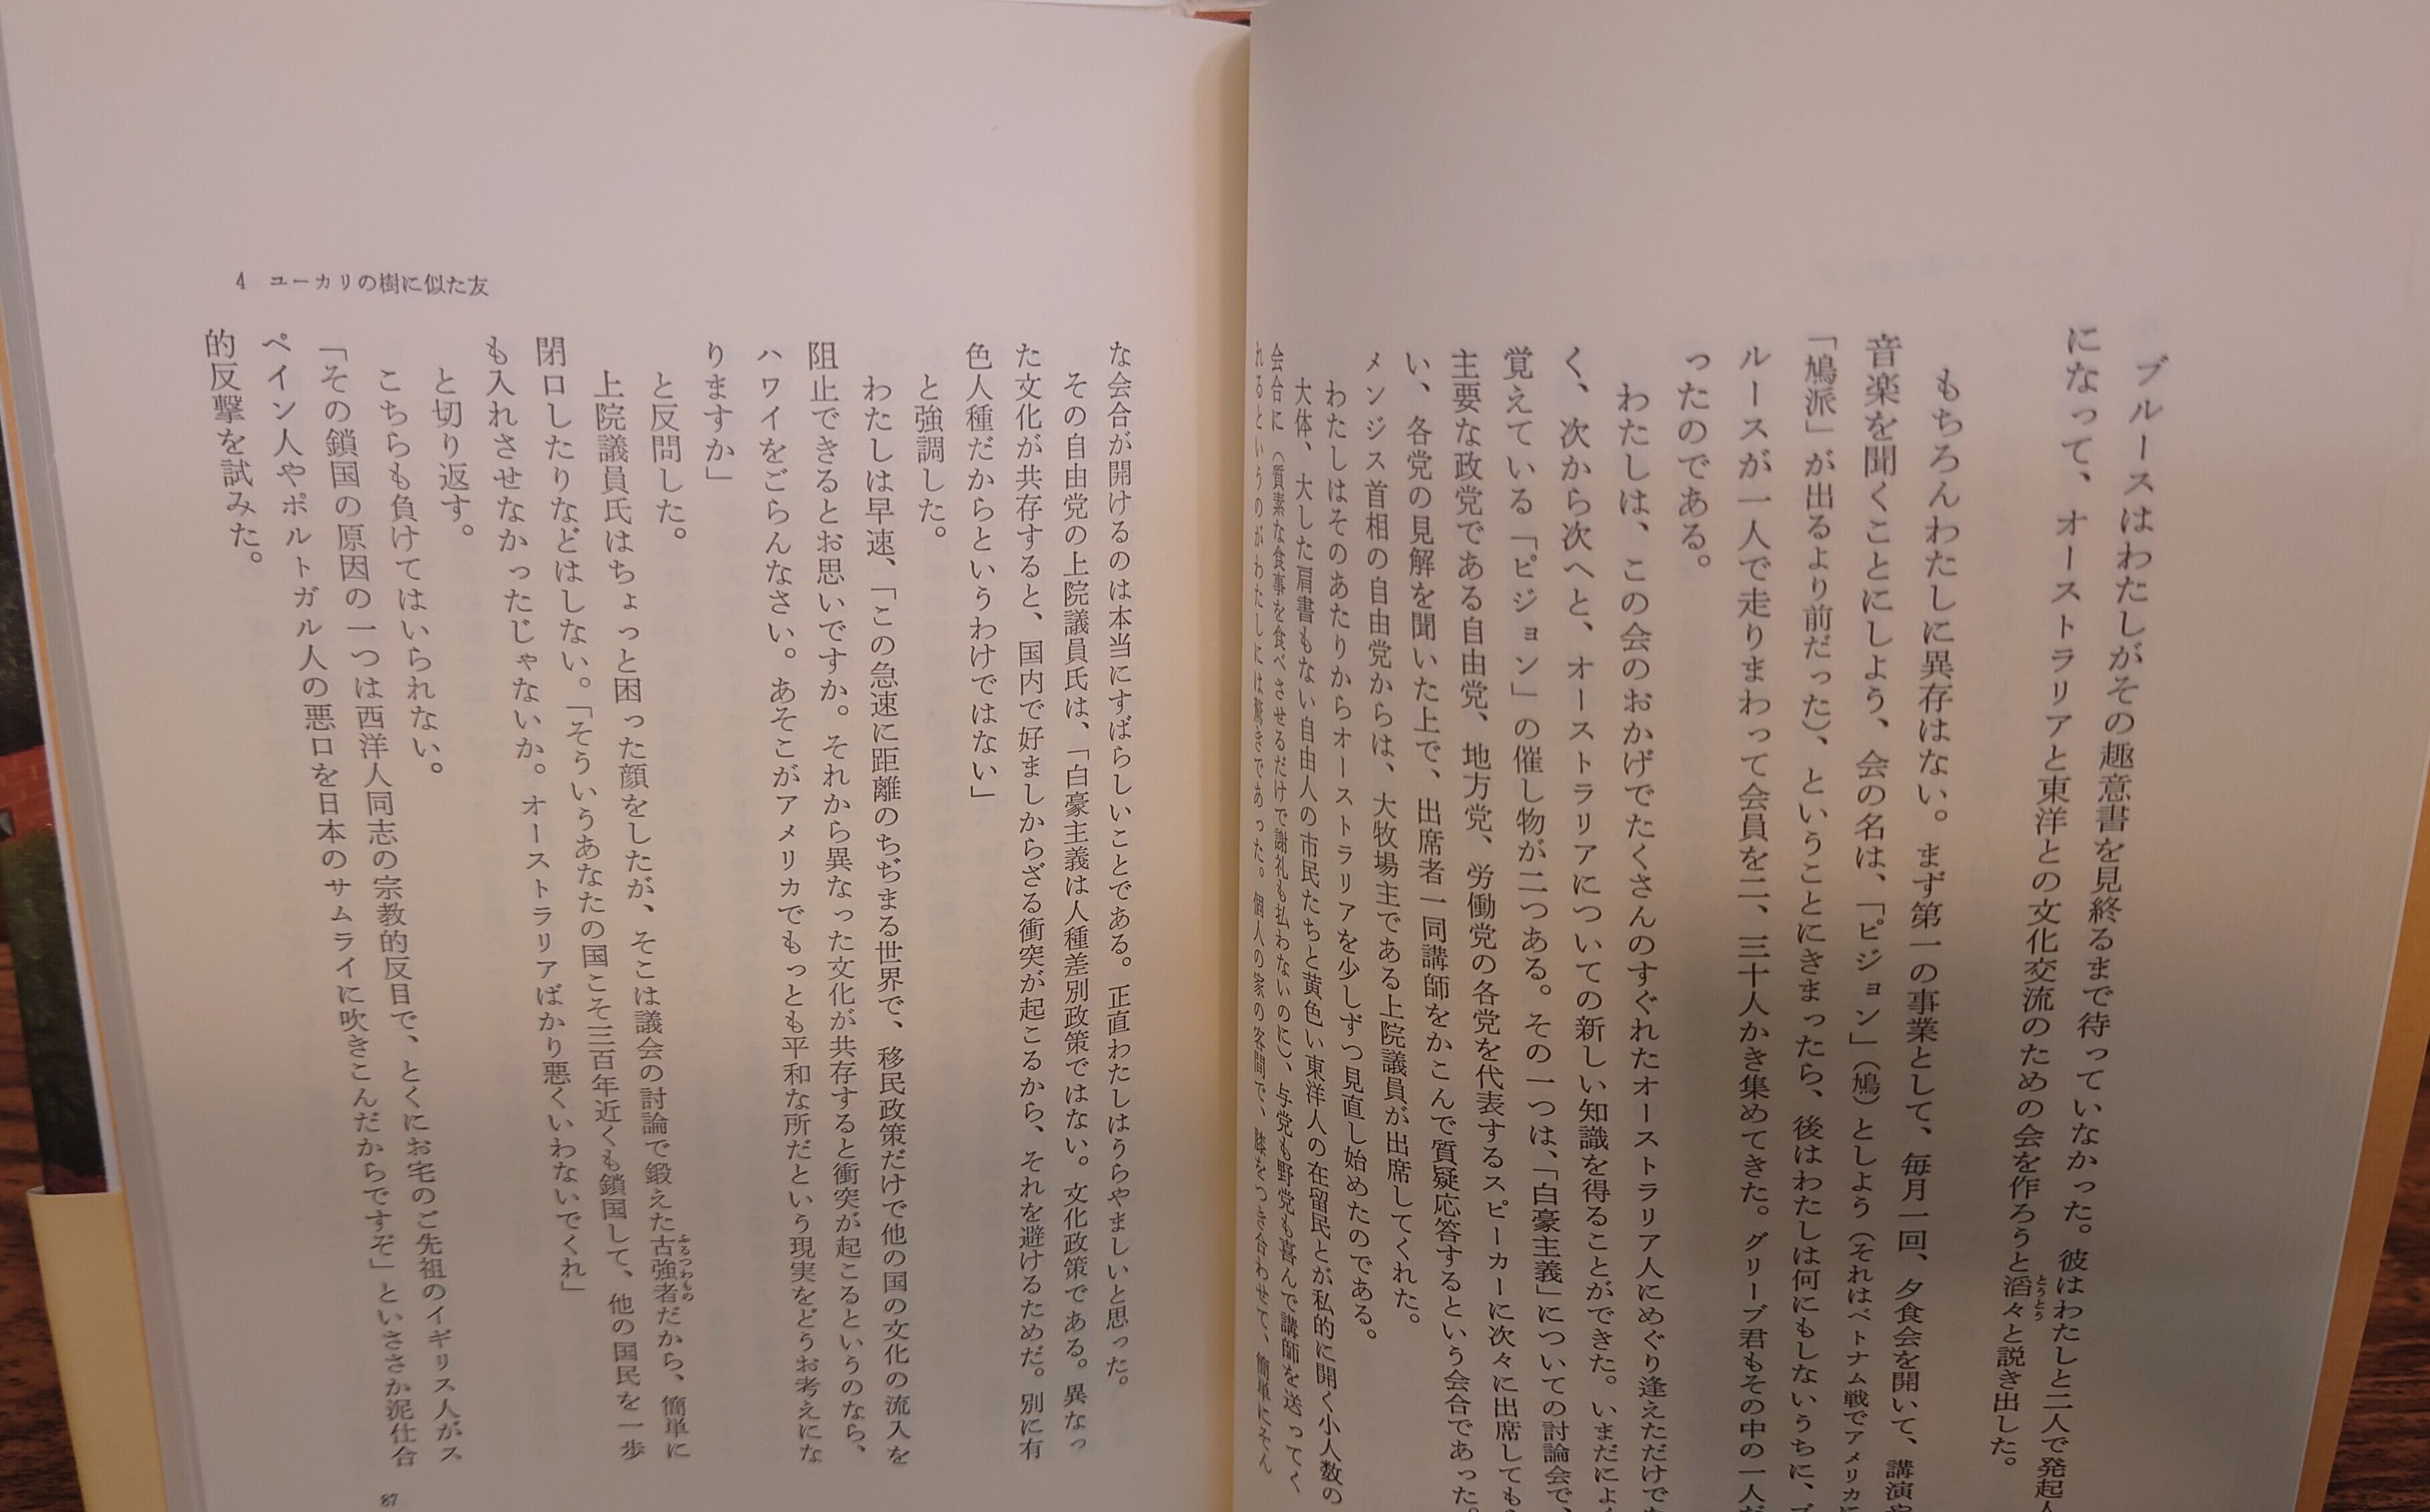 ブルースはわたしがその趣意書を見終るまで待っていなかった。彼はわたしと二人で発起人
になって、オーストラリアと東洋との文化交流のための会を作ろうと滔々と説き出した。
とうとう
もちろんわたしに異存はない。まず第一の事業として、毎月一回、夕食会を開いて、講演や
音楽を聞くことにしよう、会の名は、「ピジョン」（鳩）としよう（それはベトナム戦でアメリカに
「鳩派」が出るより前だった）、ということにきまったら、後はわたしは何にもしないうちに、ブ
ルースが一人で走りまわって会員を二、三十人かき集めてきた。グリーブ君もその中の一人だ
ったのである。
わたしは、この会のおかげでたくさんのすぐれたオーストラリア人にめぐり逢えただけで
く、次から次へと、オーストラリアについての新しい知識を得ることができた。いまだによく
覚えている「ピジョン」の催し物が二つある。その一つは、「白豪主義」についての討論会で、
主要な政党である自由党、地方党、労働党の各党を代表するスピーカーに次々に出席しても
い、各党の見解を聞いた上で、出席者一同講師をかこんで質疑応答するという会合であった。
メンジス首相の自由党からは、大牧場主である上院議員が出席してくれた。
わたしはそのあたりからオーストラリアを少しずつ見直し始めたのである。
大体、大した肩書もない自由人の市民たちと黄色い東洋人の在留民とが私的に開く小人数の
会合に（質素な食事を食べさせるだけで謝礼も払わないのに）、与党も野党も喜んで講師を送ってく
れるというのがわたしには驚きであった。個人の家の客間で、膝をつき合わせて、簡単にそん
な会合が開けるのは本当にすばらしいことである。正直わたしはうらやましいと思った。
その自由党の上院議員氏は、「白豪主義は人種差別政策ではない。文化政策である。異なっ
た文化が共存すると、国内で好ましからざる衝突が起こるから、それを避けるためだ。別に有
色人種だからというわけではない」
と強調した。
わたしは早速、「この急速に距離のちぢまる世界で、移民政策だけで他の国の文化の流入を
阻止できるとお思いですか。それから異なった文化が共存すると衝突が起こるというのなら、
ハワイをごらんなさい。あそこがアメリカでもっとも平和な所だという現実をどうお考えにな
りますか」
と反問した。
上院議員氏はちょっと困った顔をしたが、そこは議会の討論で鍛えた古強者だから、簡単に
ふるつわもの
閉口したりなどはしない。「そういうあなたの国こそ三百年近くも鎖国して、他の国民を一歩
も入れさせなかったじゃないか。オーストラリアばかり悪くいわないでくれ」
と切り返す。
こちらも負けてはいられない。
「その鎖国の原因の一つは西洋人同志の宗教的反目で、とくにお宅のご先祖のイギリス人がス
ペイン人やポルトガル人の悪口を日本のサムライに吹きこんだからですぞ」といささか泥仕合
的反撃を試みた。
4 ユーカリの樹に似た友
87